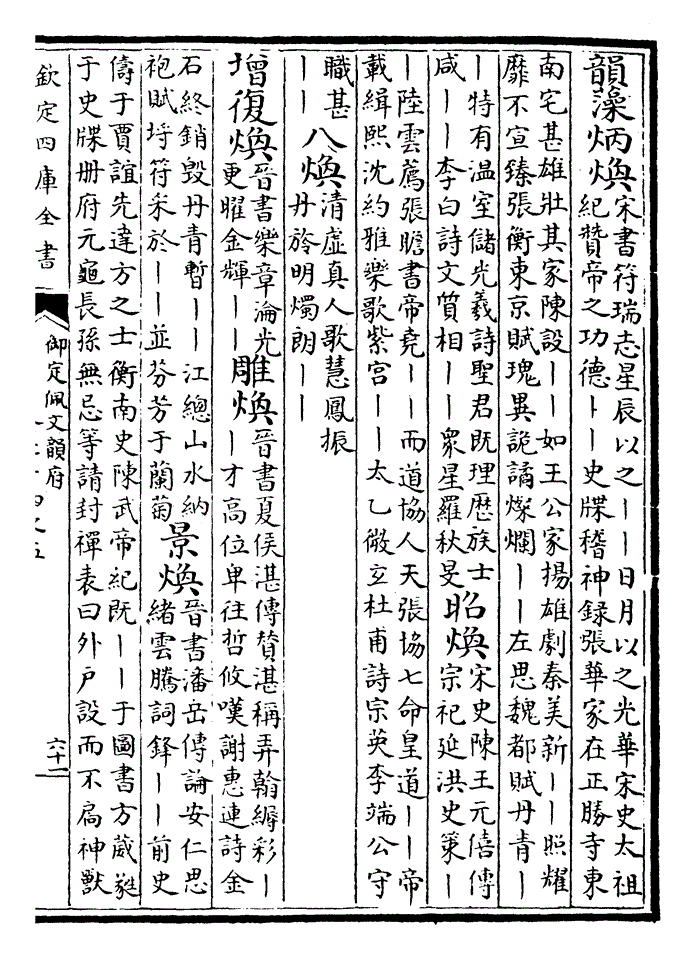 韻藻炳煥宋書符瑞志星辰以之——日月以之光華宋史太祖
紀贊帝之功德——史牒稽神録張華家在正勝寺東
南宅甚雄壯其家陳設——如王公家揚雄劇秦美新——照耀
靡不宣臻張衡東京賦瑰異詭譎燦爛——左思魏都賦丹青—
—特有温室儲光羲詩聖君既理歴族士
咸——李白詩文質相——衆星羅秋旻
昭煥宋史陳王元僖傳
宗祀延洪史策—
—陸雲薦張瞻書帝堯——而道協人天張協七命皇道——帝
載緝熙沈約雅樂歌紫宫——太乙微立杜甫詩宗英李端公守
職甚
——
八煥清虚真人歌慧鳳振
丹旍明燭朗——
增復煥晉書樂章淪光
更曜金輝——
雕煥晉書夏侯湛傳贊湛稱弄翰縟彩—
—才高位卑往哲攸嘆謝惠連詩金
石終銷毁丹青暫——江總山水納
袍賦埒符采於——並芬芳于蘭菊
景煥晉書潘岳傳論安仁思
緒雲騰詞鋒——前史
儔于賈誼先達方之士衡南史陳武帝紀既——于圖書方葳蕤
于史牒册府元龜長孫無忌等請封禪表曰外户設而不扃神獸
欽定四庫全書
御定佩文韻府
六十二